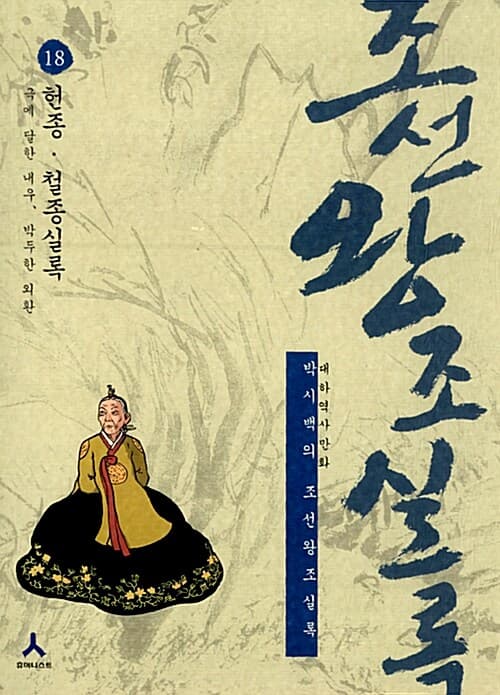 조선왕조실록
18
헌종·철종실록
극에 달한 내우, 박두한 외환
대하역사만화
박시백의 조선왕조실록
휴머니스트